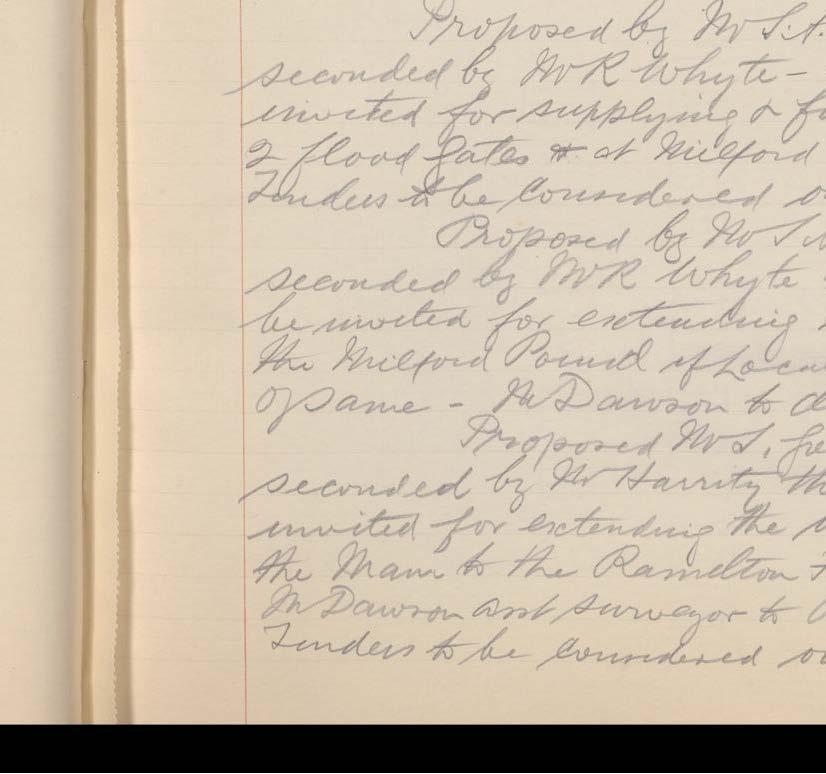 Proposed by Mr S.A.
seconded by Mr R Whyte -
invited for supplying &
2 flood gates at Milford
Tenders to be Considered
Proposed by Mr S
seconded by Mr R Whyte
be invited for extending
the Milford Pound if Loca
of same - Mr Dawson to
Proposed Mr S.
seconded by Mr Harrity th
invited for extending the
the Main to the Ramelton
Mr Dawson asst surveyor to
Tenders to be Considered